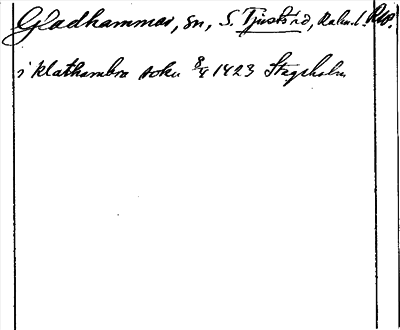 Gladhammar, sn, S. Tjusts hd, Kalm. l. RAP.
i klathambra soku 8/4 1423 Stegeholm